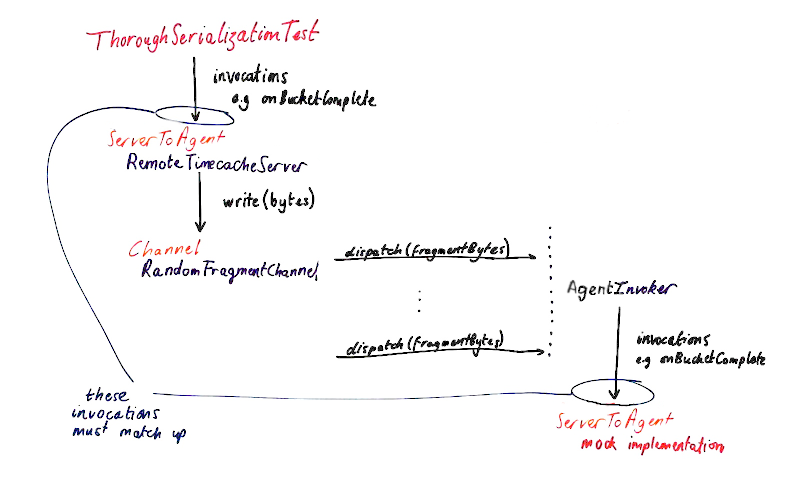 ThoroughSerializationTest
invocations
e.g onBucketComplete
ServerToAgent
RemoteTimecacheServer
write(bytes)
Channel
RandomFragmentChannel
dispatch(fragmentBytes)
AgentInvoker
dispatch(fragmentBytes)
invocations
e.g onBucketComplete
these
invocations
must match up
ServerToAgent
mock implementation